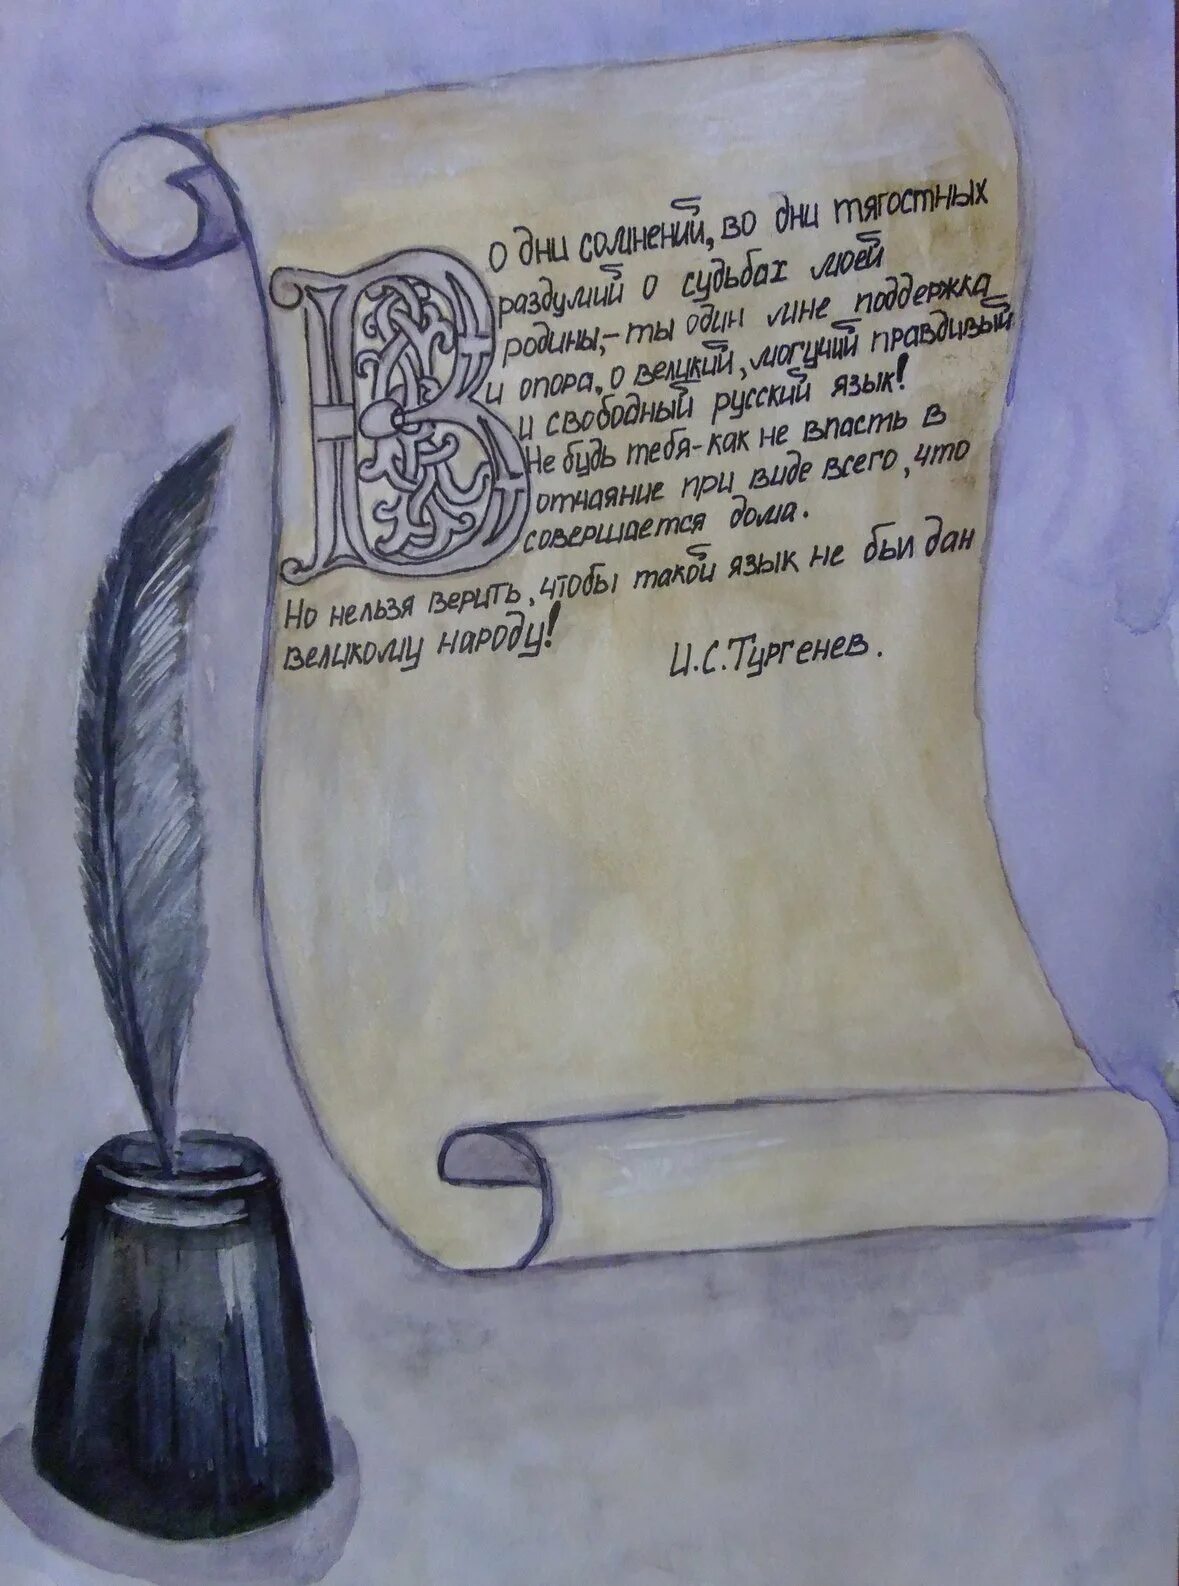 Во дни сомнений, во дни тягостных
раздумий о судьбах моей
родины,-ты один мне поддержка
и опора, о великий, могучий правдивый
и свободный русский язык!
Не будь тебя-как не впасть в
отчаяние при виде всего, что
совершается дома.
Но нельзя верить, чтобы такой язык не был дан
великому народу!
И.С.Тургенев.